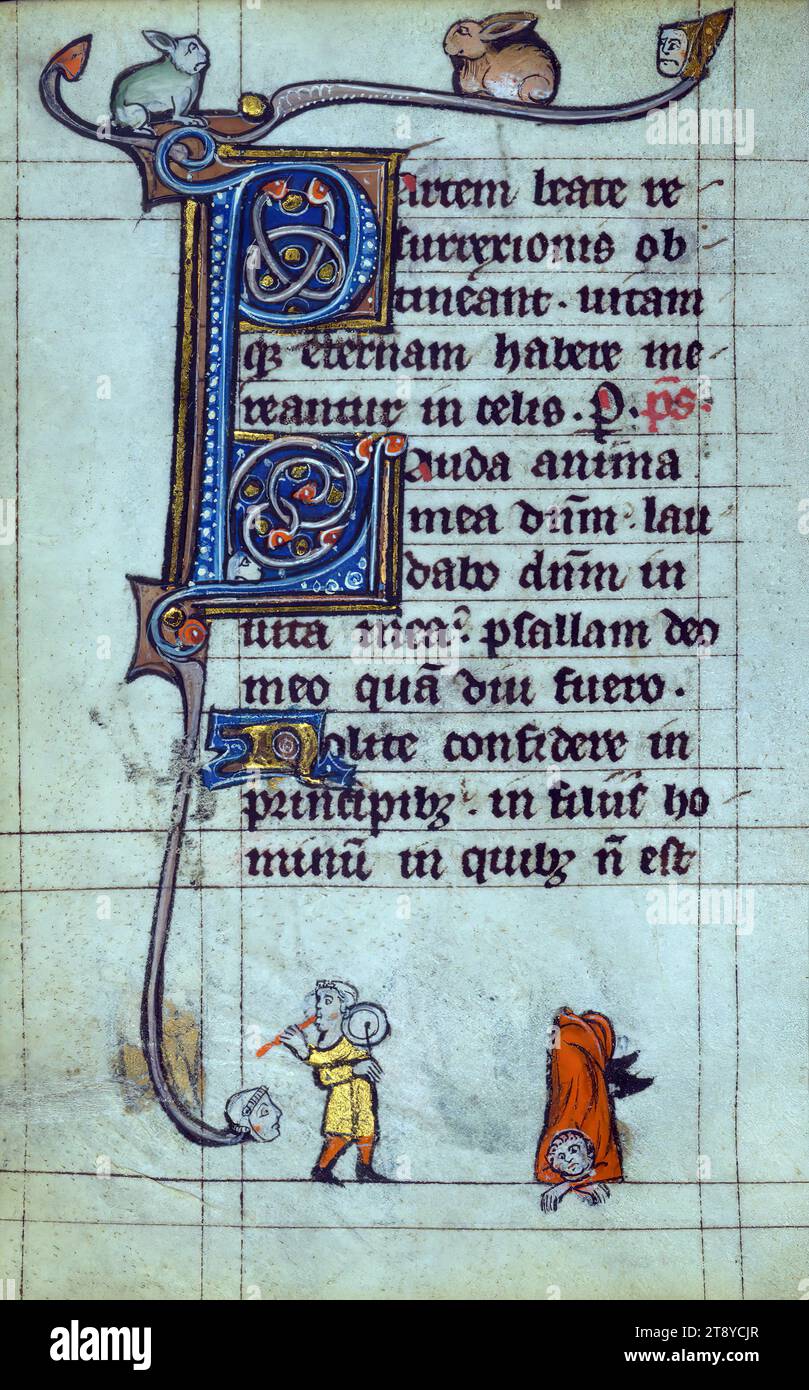 Partem beate re
surrexionis ob
tineant. uitam
qꝫ eternam habere me
reantur in celis. P. p̄s.
Lauda anima
mea dn̄m. lau
dabo dn̄m in
uita mea. psallam deo
meo quā diu fuero.
Nolite confidere in
principibꝫ. in filiis ho
minū in quibꝫ n̄ est
alamy
alamy
Image ID: 2T8YCJR
www.alamy.com